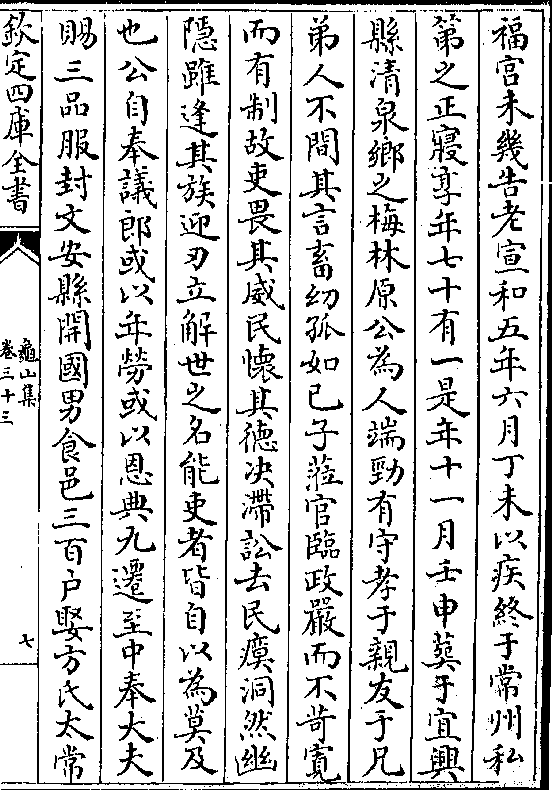 福宫未幾告老宣和五年六月丁未以疾終于常州私
第之正寢享年七十有一是年十一月壬申葬于宜興
縣清泉鄉之梅林原公為人端勁有守孝于親友于兄
弟人不間其言畜幼孤如已子蒞官臨政嚴而不苛寛
而有制故吏畏其威民懷其徳决滯訟去民瘼洞然幽
隱雖逢其族迎刃立解世之名能吏者皆自以為莫及
也公自奉議郎或以年勞或以恩典九遷至中奉大夫
賜三品服封文安縣開國男食邑三百户娶方氏太常
欽定四庫全書
龜山集
卷三十三
七